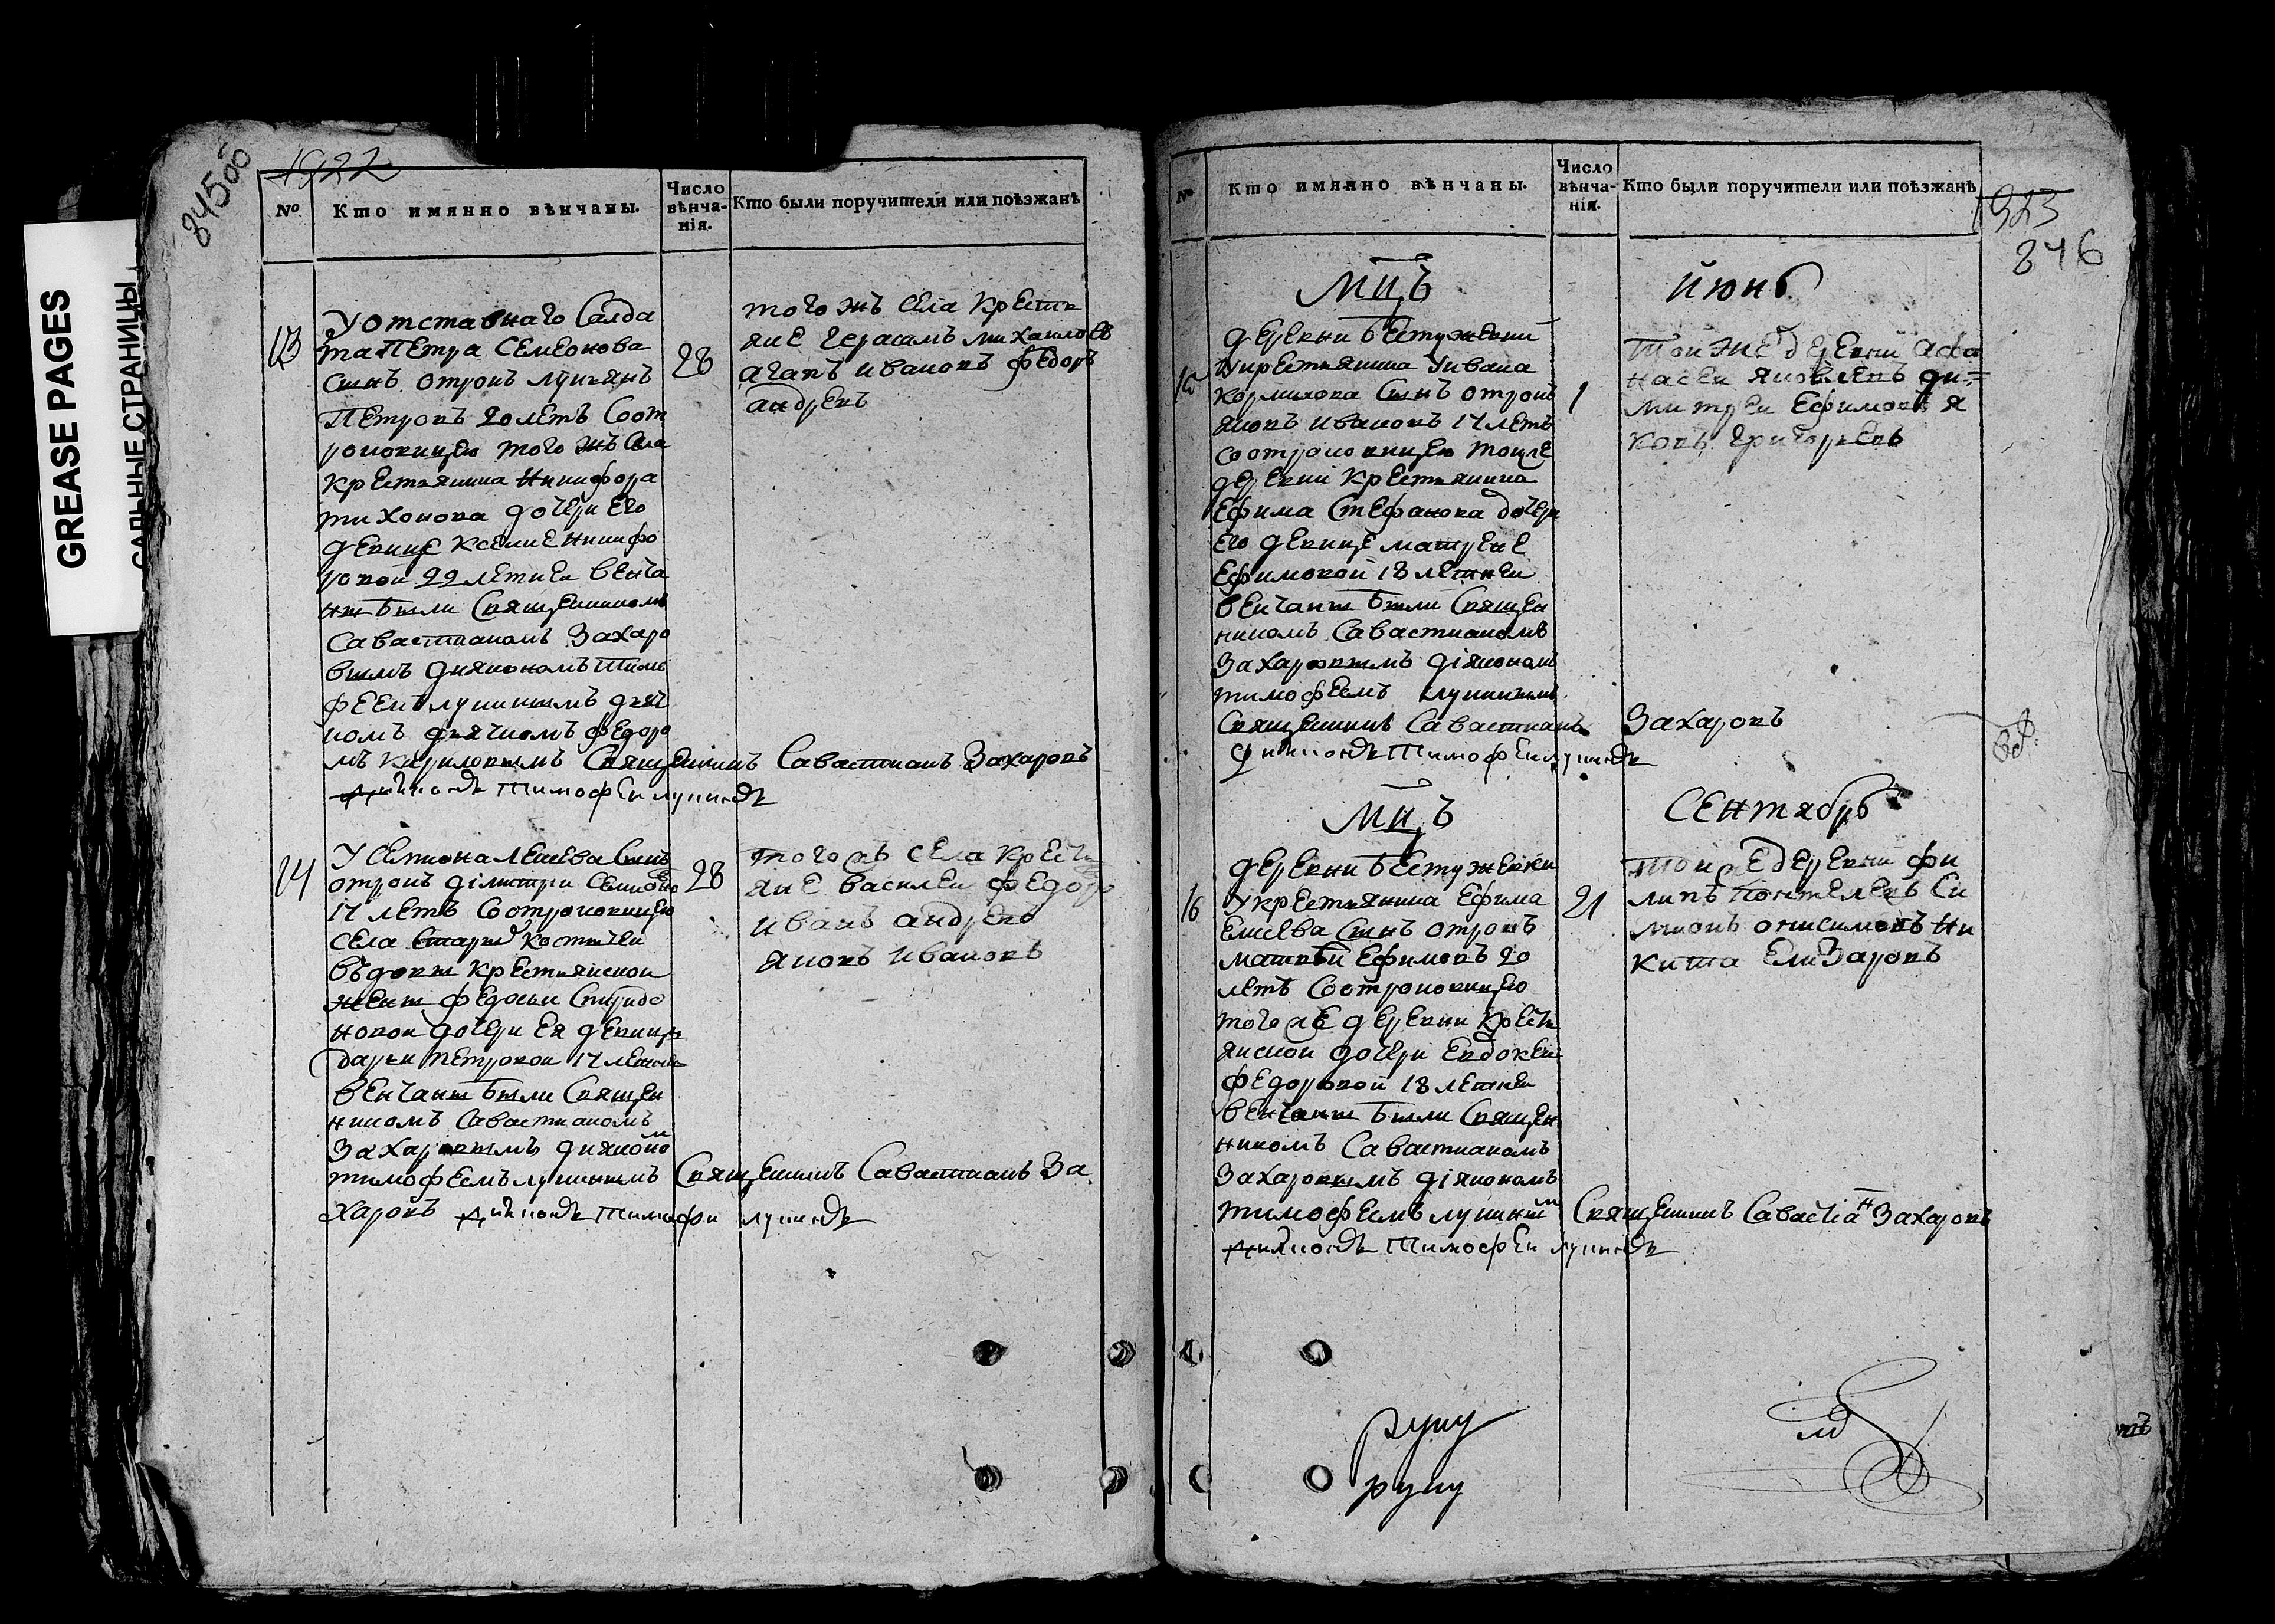 GREASE PAGES
САЛЬНЫЕ СТРАНИЦЫ
845об
1922
№
Кто имянно вѣнчаны.
Число вѣнча-нія.
Кто были поручители или поѣзжанѣ
13
У отставнаго Салда
та Петра Семеонова
сынъ отрокъ лукиянъ
Петровъ 20 летъ Соот
роковицею того жъ Села
крестьянина Никифора
тихонова дочери Его
девице ксение Никифо
ровой 22 летней венча
ны были Священникомъ
Савастианомъ Захаро
вымъ дияконамъ тимо
феемъ лунинымъ дья
комъ дьячкомъ федоро
мъ кириловымъ Священникъ Савастианъ Захаровъ
дияконъ Тимофеи лунинъ
28
того жъ села крестья
яне герасимъ михаиловъ
агапъ ивановъ федоръ
андреевъ
14
У Семиона Лексева Сынъ
отрокъ дімитри Семионо
17 летъ Соотроковицею
села Старых костычеи
вѣдовы крестьянскои
жены федосьи Спиридо
новои дочери Ея девицы
дарьи петровои 17 летней
венчаны были Священ
никомъ Савастианомъ
Захаровымъ дияконо
тимофеемъ лунинымъ Священникъ Савастианъ За
харовъ диякондъ Тимофи лунинъ
28
того жъ села крестья
яне василеи федоро
иванъ андреевъ
яковъ ивановъ
№
Кто имянно вѣнчаны.
Число вѣнча-нія.
Кто были поручители или поѣзжанѣ
1923
846
Мцъ июнь
15
деревни Бестужевки
У крестьянина Ивана
кормилова Сынъ отрокъ
яковъ ивановъ 17 летъ
соотроковицею тойже
деревни крестьянина
Ефима Стефанова дочери
Его девице матрене
Ефимовой 18 летней
венчаны были Священ
никомъ Савастианомъ
Захаровымъ діякономъ
тимофеемъ лунинымъ
Священникъ Савастианъ Захаровъ
диякондъ Тимофеи лунинъ
1
Той же деревни афа
насеи яковлевъ ди=
митреи Ефимовъ я
ковъ григорьевъ
Мцъ Сентябрь
16
деревни Бестужевки
У крестьянина Ефима
Елисева Сынъ отрокъ
матвѣй Ефимовъ 20
летъ Соотроковицею
того же деревни крестья
янскои дочери Евдокеи
федоровой 18 летней
венчаны были Священ
никомъ Савастианомъ
Захаровымъ діякономъ
тимофеемъ лунинымъ Священникъ Савастіанъ Захаровъ
диякондъ Тимофеи лунинъ
21
той же деревни фи
липъ Понтелевъ Си
мионъ онисимовъ Ни
кита Елизаровъ
руку
руку